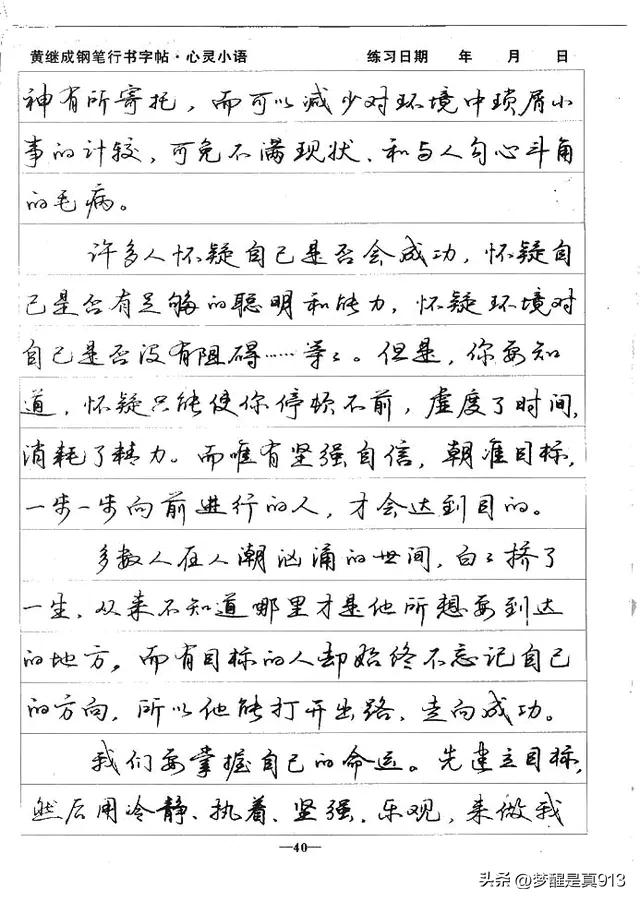 黄继成钢笔行书字帖·心灵小语 练习日期 年 月 日
神有所寄托，而可以减少对环境中琐屑小
事的计较，可免不满现状、和与人勾心斗角
的毛病。
许多人怀疑自己是否会成功，怀疑自
己是否有足够的聪明和能力，怀疑环境对
自己是否没有阻碍……等々。但是，你要知
道，怀疑只能使你停顿不前，虚度了时间，
消耗了精力。而唯有坚强自信，朝准目标，
一步一步向前进行的人，才会达到目的。
多数人在人潮汹涌的世间，白々挤了
一生，从来不知道哪里才是他所想要到达
的地方，而有目标的人却始终不忘记自己
的方向，所以他能打开出路，走向成功。
我们要掌握自己的命运。先建立目标，
然后用冷静、执着、坚强、乐观，来做我
—40—
头条@梦醒是真913